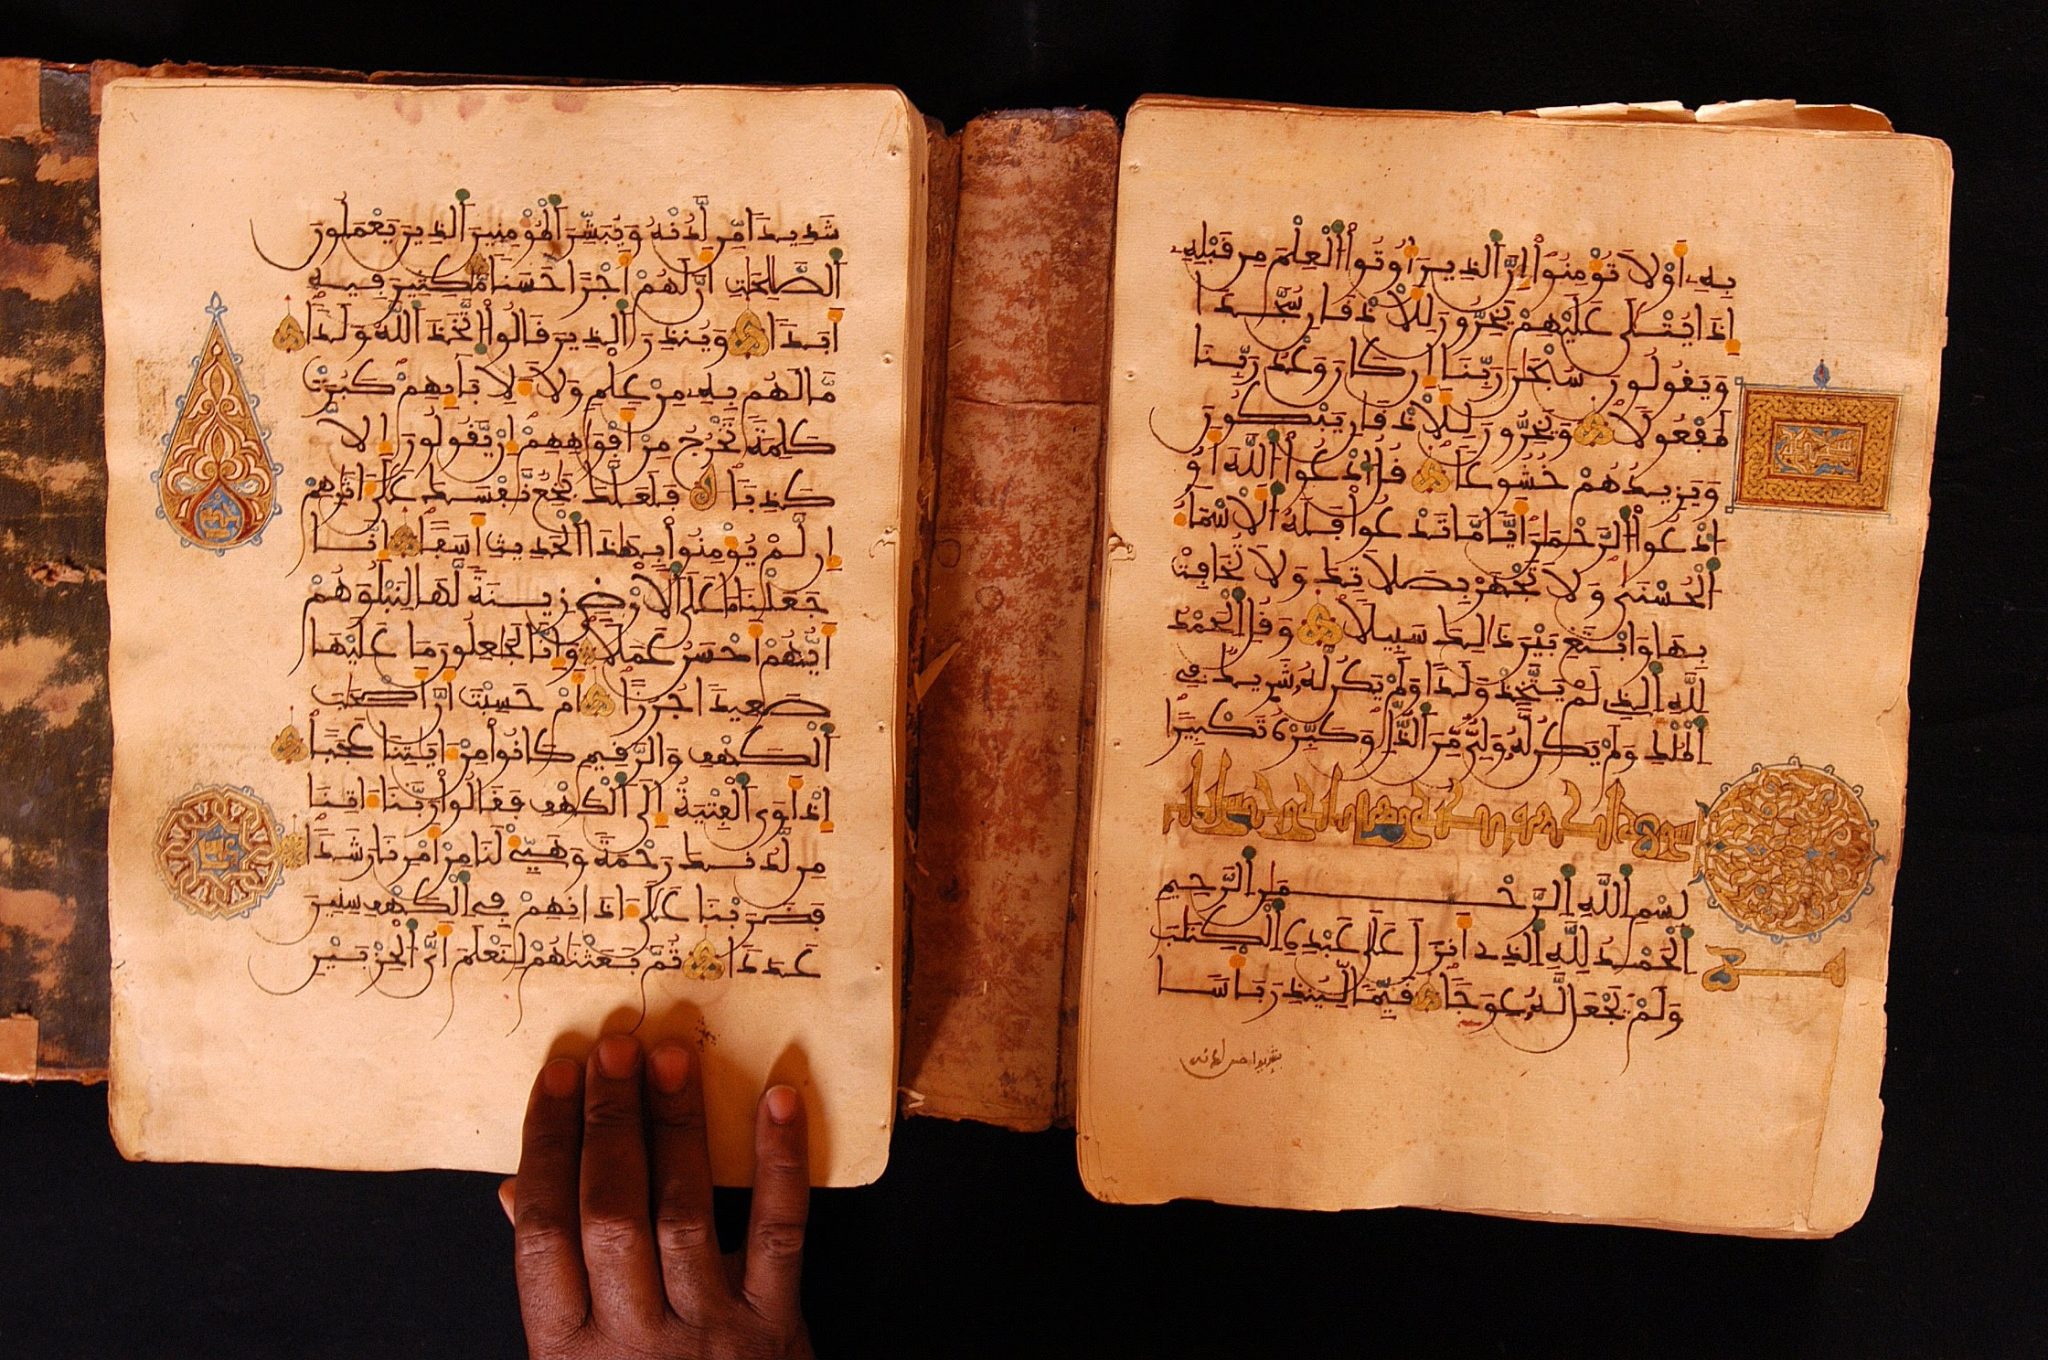 بِهِ أَوْ لَا تُؤْمِنُوا إِنَّ الَّذِينَ أُوتُوا الْعِلْمَ مِن قَبْلِهِ
إِذَا يُتْلَى عَلَيْهِمْ يَخِرُّونَ لِلْأَذْقَانِ سُجَّدًا
وَيَقُولُونَ سُبْحَنَ رَبِّنَا إِن كَانَ وَعْدُ رَبِّنَا
لَمَفْعُولًا وَيَخِرُّونَ لِلْأَذْقَانِ يَبْكُونَ
وَيَزِيدُهُمْ خُشُوعًا قُلُ ادْعُوا اللَّهَ أَوُ
ادْعُوا الرَّحْمَنَ أَيًّا مَّا تَدْعُوا فَلَهُ الْأَسْمَاءُ
الْحُسْنَى وَلَا تَجْهَرْ بِصَلَاتِكَ وَلَا تُخَافِتْ
بِهَا وَابْتَغِ بَيْنَ ذَلِكَ سَبِيلًا وَقُلِ الْحَمْدُ
لِلَّهِ الَّذِي لَمْ يَتَّخِذْ وَلَدًا وَلَمْ يَكُن لَّهُ شَرِيكٌ فِي
الْمُلْكِ وَلَمْ يَكُن لَّهُ وَلِيٌّ مِّنَ الذُّلِّ وَكَبِّرْهُ تَكْبِيرًا
سورة الكهف
بِسْمِ اللَّهِ الرَّحْمَنِ الرَّحِيمِ
الْحَمْدُ لِلَّهِ الَّذِي أَنزَلَ عَلَى عَبْدِهِ الْكِتَبَ
وَلَمْ يَجْعَل لَّهُ عِوَجًا قَيِّمًا لِّيُنذِرَ بَأْسًا
شَدِيدًا مِّن لَّدُنْهُ وَيُبَشِّرَ الْمُؤْمِنِينَ الَّذِينَ يَعْمَلُونَ
الصَّالِحَتِ أَنَّ لَهُمْ أَجْرًا حَسَنًا مَّكِثِينَ فِيهِ
أَبَدًا وَيُنذِرَ الَّذِينَ قَالُوا اتَّخَذَ اللَّهُ وَلَدًا
مَّا لَهُم بِهِ مِنْ عِلْمٍ وَلَا لِأَبَائِهِمْ كَبُرَتْ
كَلِمَةً تَخْرُجُ مِنْ أَفْوَاهِهِمْ إِن يَّقُولُونَ إِلَّا
كَذِبًا فَلَعَلَّكَ بَخِعٌ نَّفْسَكَ عَلَى أَثَرِهِمْ
إِن لَّمْ يُؤْمِنُوا بِهَذَا الْحَدِيثِ أَسَفًا إِنَّا
جَعَلْنَا مَا عَلَى الْأَرْضِ زِينَةً لَّهَا لِنَبْلُوَهُمْ
أَيُّهُمْ أَحْسَنُ عَمَلًا وَإِنَّا لَجَعِلُونَ مَا عَلَيْهَا
صَعِيدًا جُرُزًا أَمْ حَسِبْتَ أَنَّ أَصْحَبَ
الْكَهْفِ وَالرَّقِيمِ كَانُوا مِنْ ءَايَتِنَا عَجَبًا
إِذْ أَوَى الْفِتْيَةُ إِلَى الْكَهْفِ فَقَالُوا رَبَّنَا ءَاتِنَا
مِن لَّدُنكَ رَحْمَةً وَهَيِّئْ لَنَا مِنْ أَمْرِنَا رَشَدًا
فَضَرَبْنَا عَلَى ءَاذَانِهِمْ فِي الْكَهْفِ سِنِينَ
عَدَدًا ثُمَّ بَعَثْنَاهُمْ لِنَعْلَمَ أَيُّ الْحِزْبَيْنِ